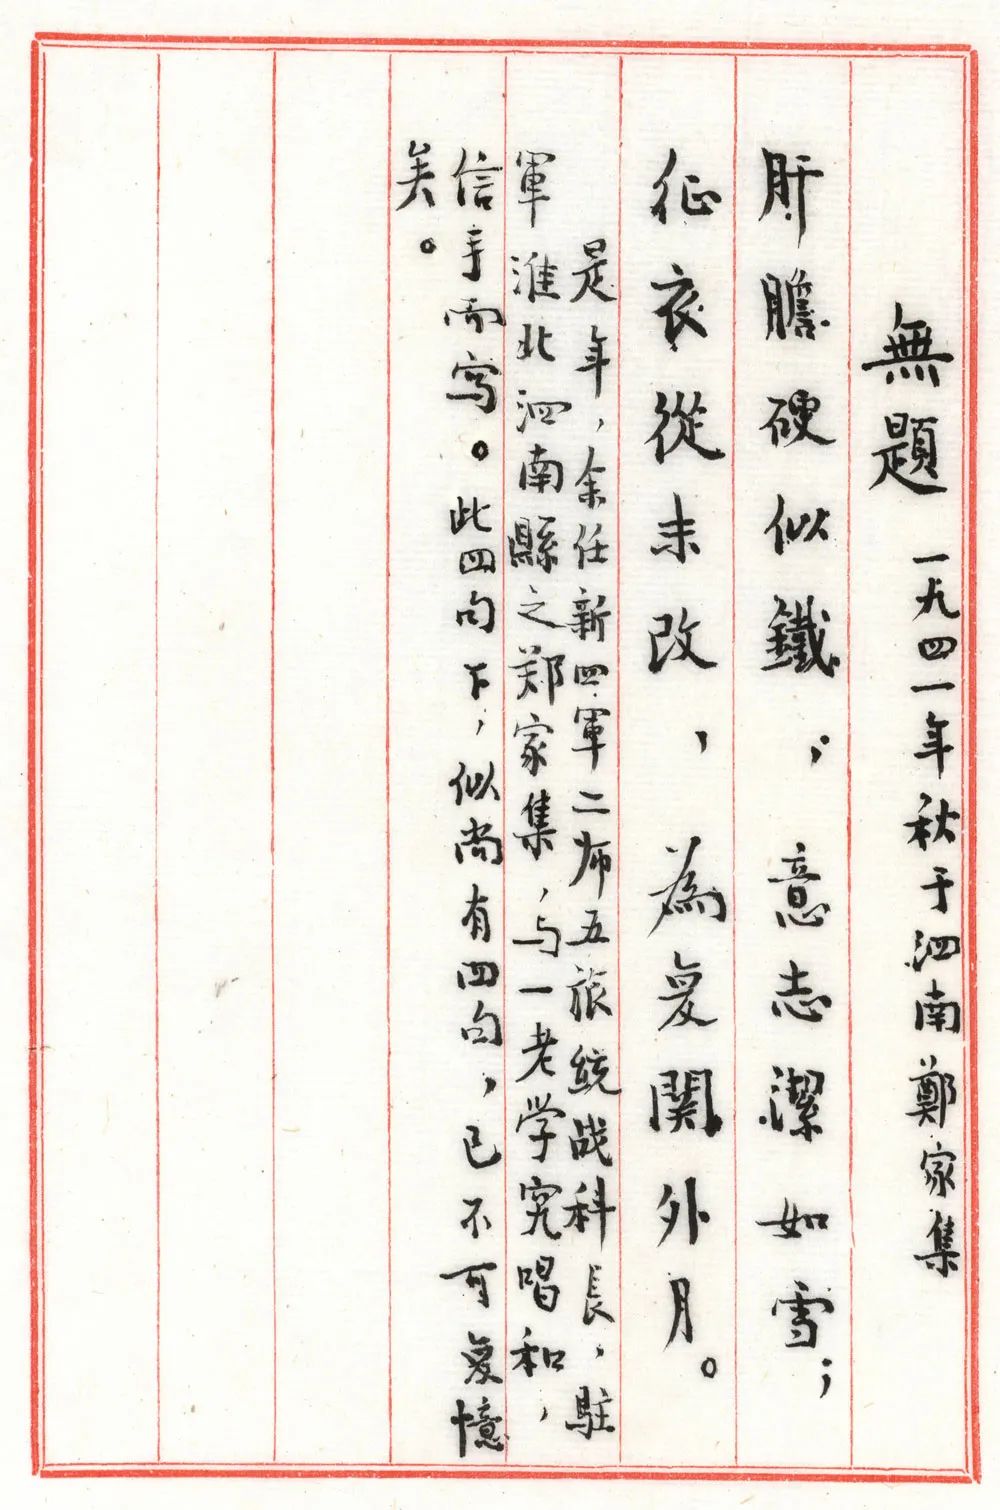 無題 一九四一年秋于泗南鄭家集
肝膽硬似鐵，意志潔如雪；
征衣從未改，為复關外月。
是年，余任新四軍二师五旅統战科長，駐
軍淮北泗南縣之郑家集，与一老学究唱和，
信手而写。此四句下，似尚有四句，已不可复憶
矣。